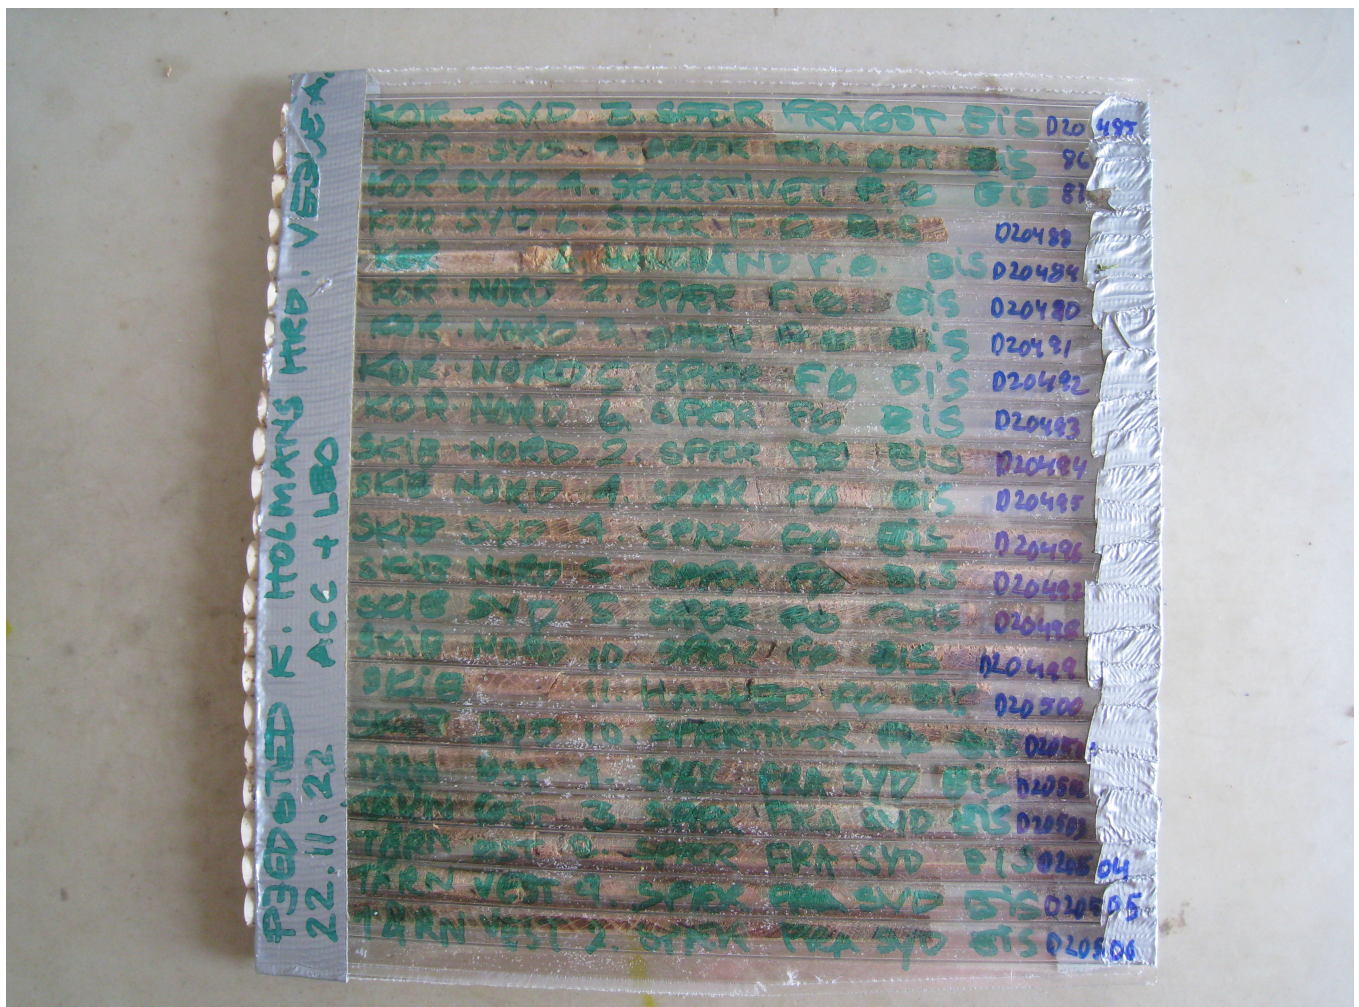 KOR - SYD 3. SPÆR FRA ØST BiS D20 485
KOR - SYD 4. SPÆR FRA ØST BiS 86
KOR SYD 4. SPÆRSTIVER F.Ø BiS 87
KOR SYD 6. SPÆR F.Ø BiS D20488
HANBÅND F.Ø. BiS D20484
KOR - NORD 2. SPÆR F.Ø BiS D20480
KOR - NORD SPÆR BiS D20491
KOR - NORD SPÆR FØ BiS D20492
KOR - NORD 6. SPÆR FØ BiS D20493
SKiB NORD 2. SPÆR FØ BiS D20494
SKiB NORD 4. SPÆR FØ BiS D20495
SKiB SYD 4. SPÆR FØ BiS D20496
SKiB NORD SPÆR FØ BiS D20497
SKiB SYD SPÆR FØ BiS D20498
SKiB NORD 10 SPÆR FØ BiS D20499
SKiB 11. FØ BiS D20500
SKiB SYD 10. SPÆRSTIVER FØ BiS
TÅRN ØST 4. SPÆR FRA SYD BiS D20502
TÅRN ØST 3. SPÆR FRA SYD BiS D20503
TÅRN ØST SPÆR FRA SYD BIS D205 04
TÅRN VEST 4. SPÆR FRA SYD BiS D20505
TÅRN VEST 2. SPÆR FRA SYD BiS D20506
K. HOLMANS HRD.
22.11.22 ACC + LBO